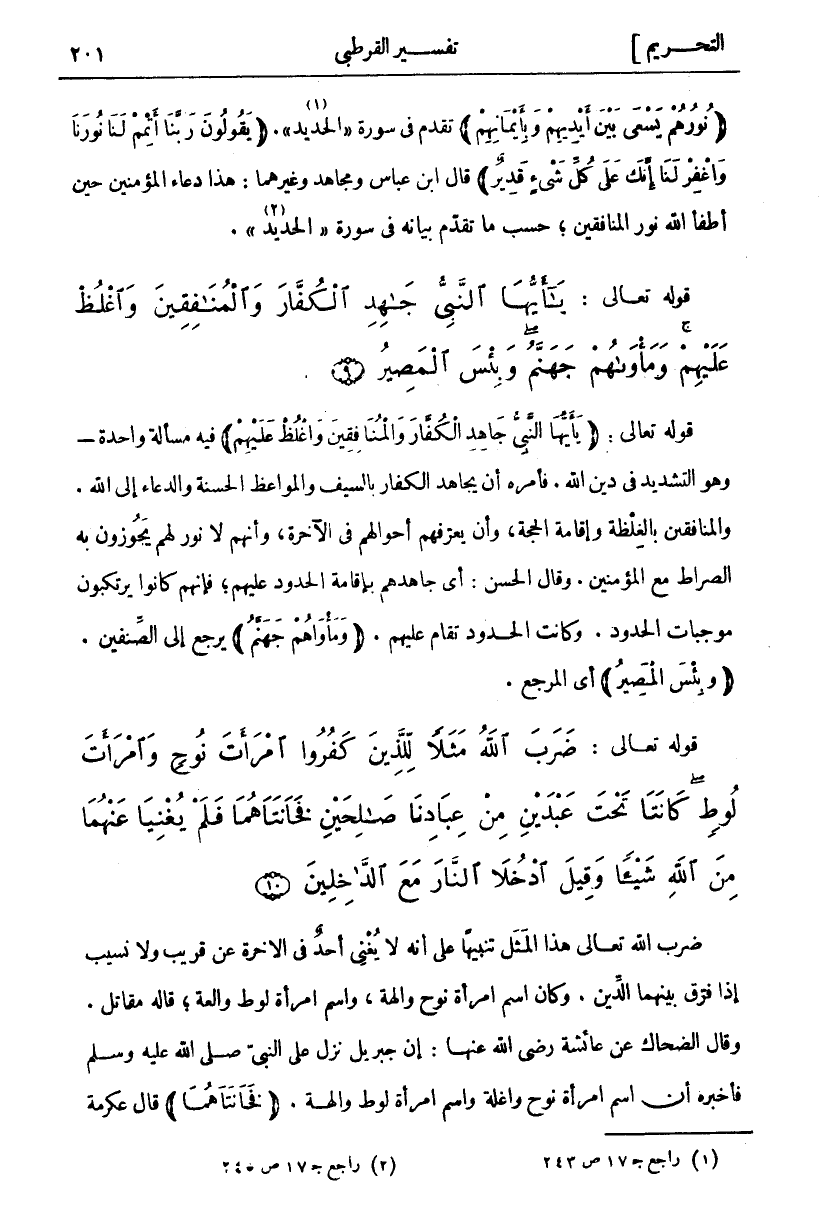 التحـــريم ]
تفســـير القرطبى
٢٠١
﴿ نُورُهُمْ يَسْعَى بَيْنَ أَيْدِيهِمْ وَبِأَيْمَانِهِمْ ﴾ تقدم فى سورة «الحديد»(١). ﴿ يَقُولُونَ رَبَّنَا أَتْمِمْ لَنَا نُورَنَا
وَاغْفِرْ لَنَا إِنَّكَ عَلَى كُلِّ شَىْءٍ قَدِيرٌ ﴾ قال ابن عباس ومجاهد وغيرهما : هذا دعاء المؤمنين حين
أطفأ الله نور المنافقين ؛ حسب ما تقدّم بيانه فى سورة « الحديد(٢) » .
قوله تعـالى : يَـٰٓأَيُّهَا ٱلنَّبِىُّ جَـٰهِدِ ٱلْكُفَّارَ وَٱلْمُنَـٰفِقِينَ وَٱغْلُظْ
عَلَيْهِمْ ۚ وَمَأْوَىٰهُمْ جَهَنَّمُ ۖ وَبِئْسَ ٱلْمَصِيرُ ۝٩
قوله تعالى : ﴿ يَأَيُّهَا النَّبِىُّ جَاهِدِ الْكُفَّارَ وَالْمُنَافِقِينَ وَاغْلُظْ عَلَيْهِمْ ﴾ فيه مسألة واحدة —
وهو التشديد فى دين الله . فأمره أن يجاهد الكفار بالسيف والمواعظ الحسنة والدعاء إلى الله .
والمنافقين بالغِلْظة وإقامة الحجة، وأن يعرّفهم أحوالهم فى الآخرة، وأنهم لا نور لهم يَجُوزون به
الصراط مع المؤمنين . وقال الحسن : أى جاهدهم بإقامة الحدود عليهم؛ فإنهم كانوا يرتكبون
موجبات الحدود . وكانت الحـدود تقام عليهم . ﴿ وَمَأْوَاهُمْ جَهَنَّمُ ﴾ يرجع إلى الصِّنفين .
﴿ وبِئْسَ الْمَصِيرُ ﴾ أى المرجع .
قوله تعـالى : ضَرَبَ ٱللَّهُ مَثَلًا لِّلَّذِينَ كَفَرُوا ٱمْرَأَتَ نُوحٍ وَٱمْرَأَتَ
لُوطٍ ۖ كَانَتَا تَحْتَ عَبْدَيْنِ مِنْ عِبَادِنَا صَـٰلِحَيْنِ فَخَانَتَاهُمَا فَلَمْ يُغْنِيَا عَنْهُمَا
مِنَ ٱللَّهِ شَيْـًٔا وَقِيلَ ٱدْخُلَا ٱلنَّارَ مَعَ ٱلدَّٰخِلِينَ ۝١٠
ضرب الله تعـالى هذا المَثَل تنبيهًا على أنه لا يُغْنِى أحدٌ فى الآخرة عن قريب ولا نسيب
إذا فرّق بينهما الدِّين . وكان اسم امرأة نوح والهة ، واسم امرأة لوط والعة ؛ قاله مقاتل .
وقال الضحاك عن عائشة رضى الله عنهـا : إن جبريل نزل على النبىّ صـلى الله عليه وسـلم
فأخبره أن اسم امرأة نوح واغلة واسم امرأة لوط والهـة . ﴿ فَخَانَتَاهُمَا ﴾ قال عكرمة
(١) راجع جـ ١٧ ص ٢٤٣
(٢) راجع جـ ١٧ ص ٢٤٥